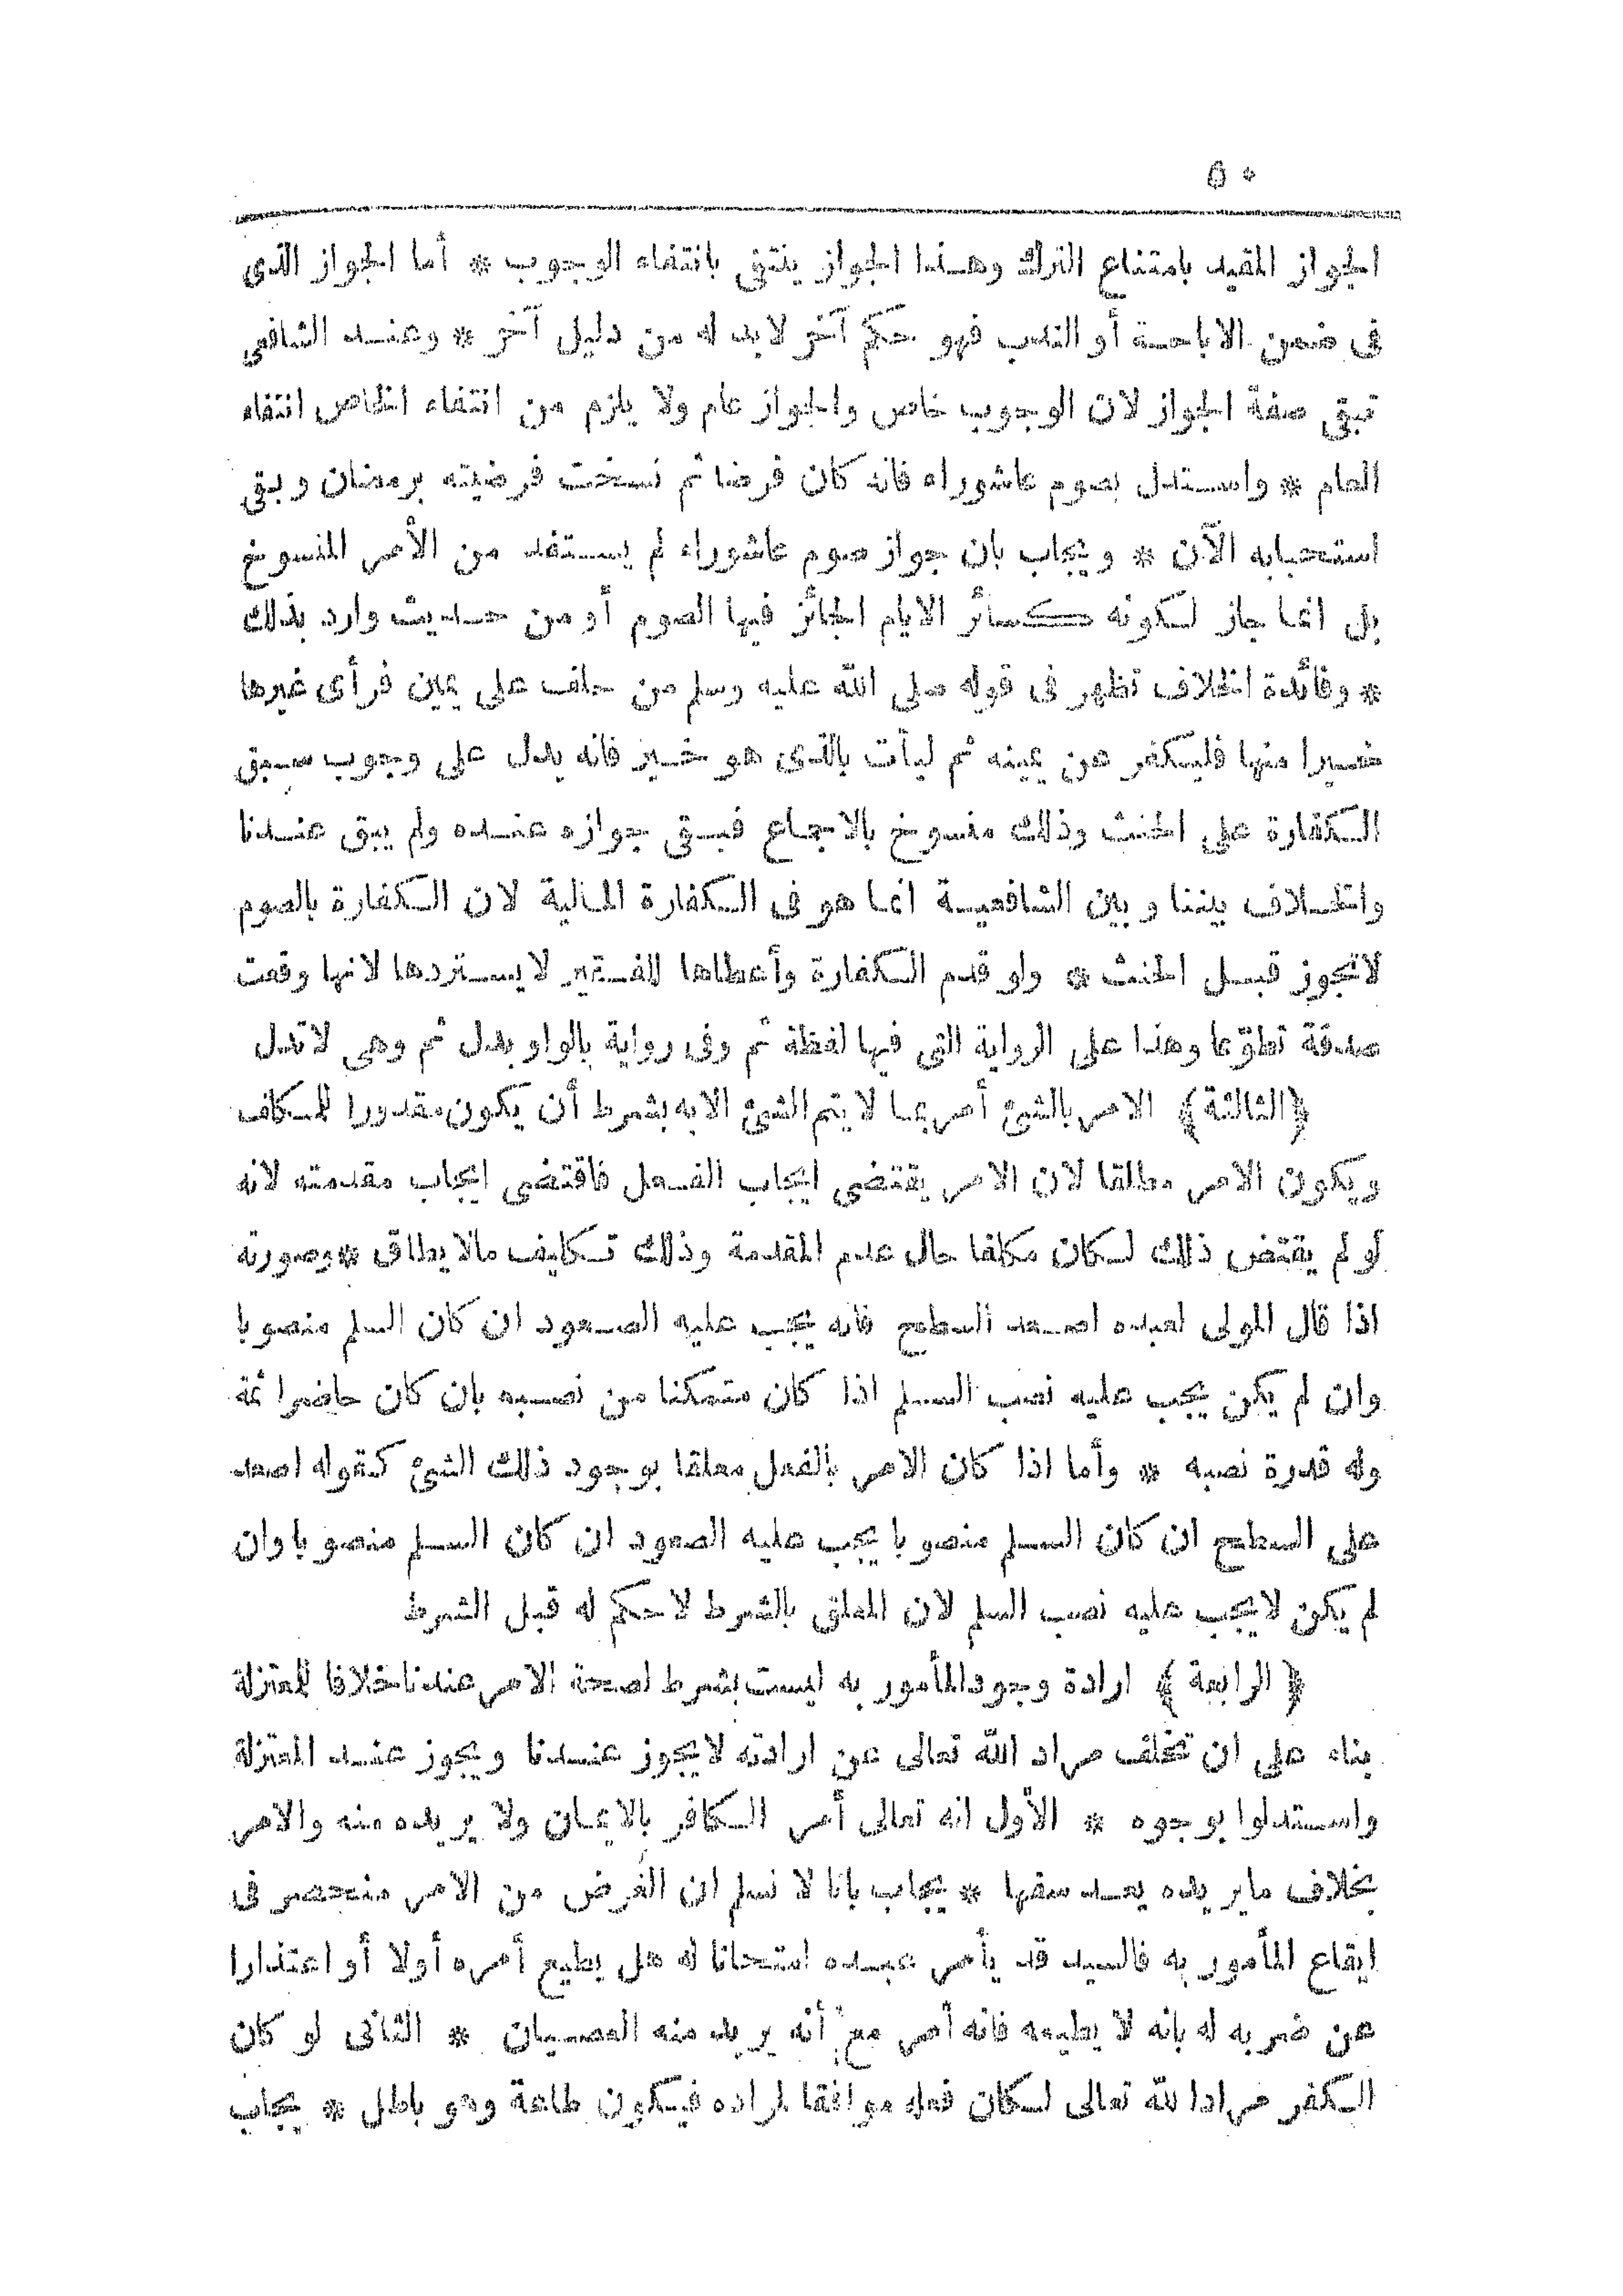 ٥٠
الجواز المقيد بامتناع الترك وهذا الجواز ينتفى بانتفاء الوجوب * أما الجواز الذى
فى ضمن الاباحة أو الندب فهو حكم آخر لابد له من دليل آخر * وعند الشافعى
تبقى صفة الجواز لان الوجوب خاص والجواز عام ولا يلزم من انتفاء الخاص انتفاء
العام * واستدل بصوم عاشوراء فانه كان فرضا ثم نسخت فرضيته برمضان وبقى
استحبابه الآن * ويجاب بان جواز صوم عاشوراء لم يستفد من الأمر المنسوخ
بل انما جاز لكونه كسائر الايام الجائز فيها الصوم أو من حديث وارد بذلك
* وفائدة الخلاف تظهر فى قوله صلى الله عليه وسلم من حلف على يمين فرأى غيرها
خيرا منها فليكفر عن يمينه ثم ليأت بالذى هو خير فانه يدل على وجوب سبق
الكفارة على الحنث وذلك منسوخ بالاجماع فبقى جوازه عنده ولم يبق عندنا
والخلاف بيننا وبين الشافعية انما هو فى الكفارة المالية لان الكفارة بالصوم
لاتجوز قبل الحنث * ولو قدم الكفارة وأعطاها للفقير لايستردها لانها وقعت
صدقة تطوّعا وهذا على الرواية التى فيها لفظة ثم وفى رواية بالواو بدل ثم وهى لاتدل
﴿الثالثة﴾ الامر بالشئ أمر بما لايتم الشئ الابه بشرط أن يكون مقدورا للمكلف
ويكون الامر مطلقا لان الامر يقتضى ايجاب الفعل فاقتضى ايجاب مقدمته لانه
لو لم يقتض ذلك لكان مكلفا حال عدم المقدمة وذلك تكليف مالايطاق * وصورته
اذا قال المولى لعبده اصعد السطح فانه يجب عليه الصعود ان كان السلم منصوبا
وان لم يكن يجب عليه نصب السلم اذا كان متمكنا من نصبه بان كان حاضرا ثمة
وله قدرة نصبه * وأما اذا كان الامر بالفعل معلقا بوجود ذلك الشئ كقوله اصعد
على السطح ان كان السلم منصوبا يجب عليه الصعود ان كان السلم منصوبا وان
لم يكن لايجب عليه نصب السلم لان المعلق بالشرط لاحكم له قبل الشرط
﴿الرابعة﴾ ارادة وجود المأمور به ليست بشرط لصحة الامر عندنا خلافا للمعتزلة
بناء على ان تخلف مراد الله تعالى عن ارادته لايجوز عندنا ويجوز عند المعتزلة
واستدلوا بوجوه * الأول انه تعالى أمر الكافر بالايمان ولا يريده منه والامر
بخلاف مايريده يعد سفها * يجاب بانا لا نسلم ان الغرض من الامر منحصر فى
ايقاع المأمور به فالسيد قد يأمر عبده امتحانا له هل يطيع أمره أولا أو اعتذارا
عن ضربه له بانه لا يطيعه فانه أمر مع أنه يريد منه العصيان * الثانى لو كان
الكفر مرادا لله تعالى لكان فعله موافقا لمراده فيكون طاعة وهو باطل * يجاب